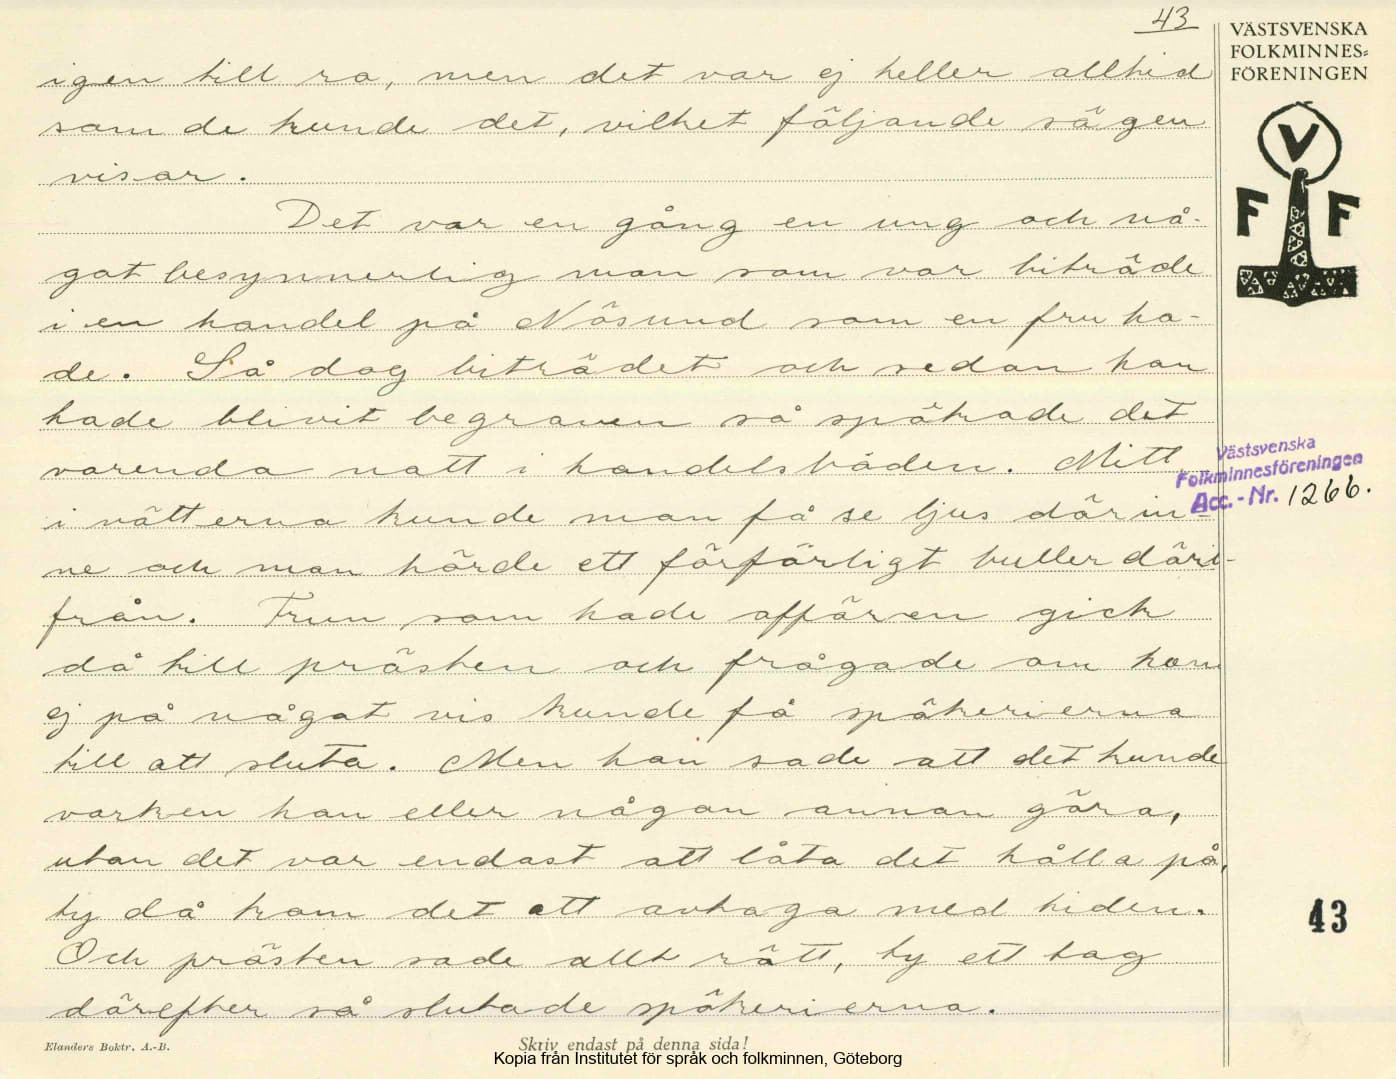 43
VÄSTSVENSKA
FOLKMINNES=
FÖRENINGEN
igen till ro, men det var ej heller alltid
som de kunde det, vilket följande sägen
visar.
Det var en gång en ung och nå-
got besynnerlig man som var biträde
i en handel på Nösund som en fru ha-
de. Så dog biträdet och sedan han
hade blivit begraven så spökade det
varenda natt i handelsboden. Mitt
i nätterna kunde man få se ljus därin-
ne och man hörde ett förfärligt buller däri-
från. Frun som hade affären gick
då till prästen och frågade om han
ej på något vis kunde få spökerierna
till att sluta. Men han sade att det kunde
varken han eller någon annan göra,
utan det var endast att låta det hålla på,
ty då kom det att avtaga med tiden.
Och prästen sade allt rätt, ty ett tag
därefter så slutade spökerierna.
V
F F
Västsvenska
Folkminnesföreningen
Acc.-Nr. 1266.
43
Elanders Boktr. A.-B.
Skriv endast på denna sida!
Kopia från Institutet för språk och folkminnen, Göteborg